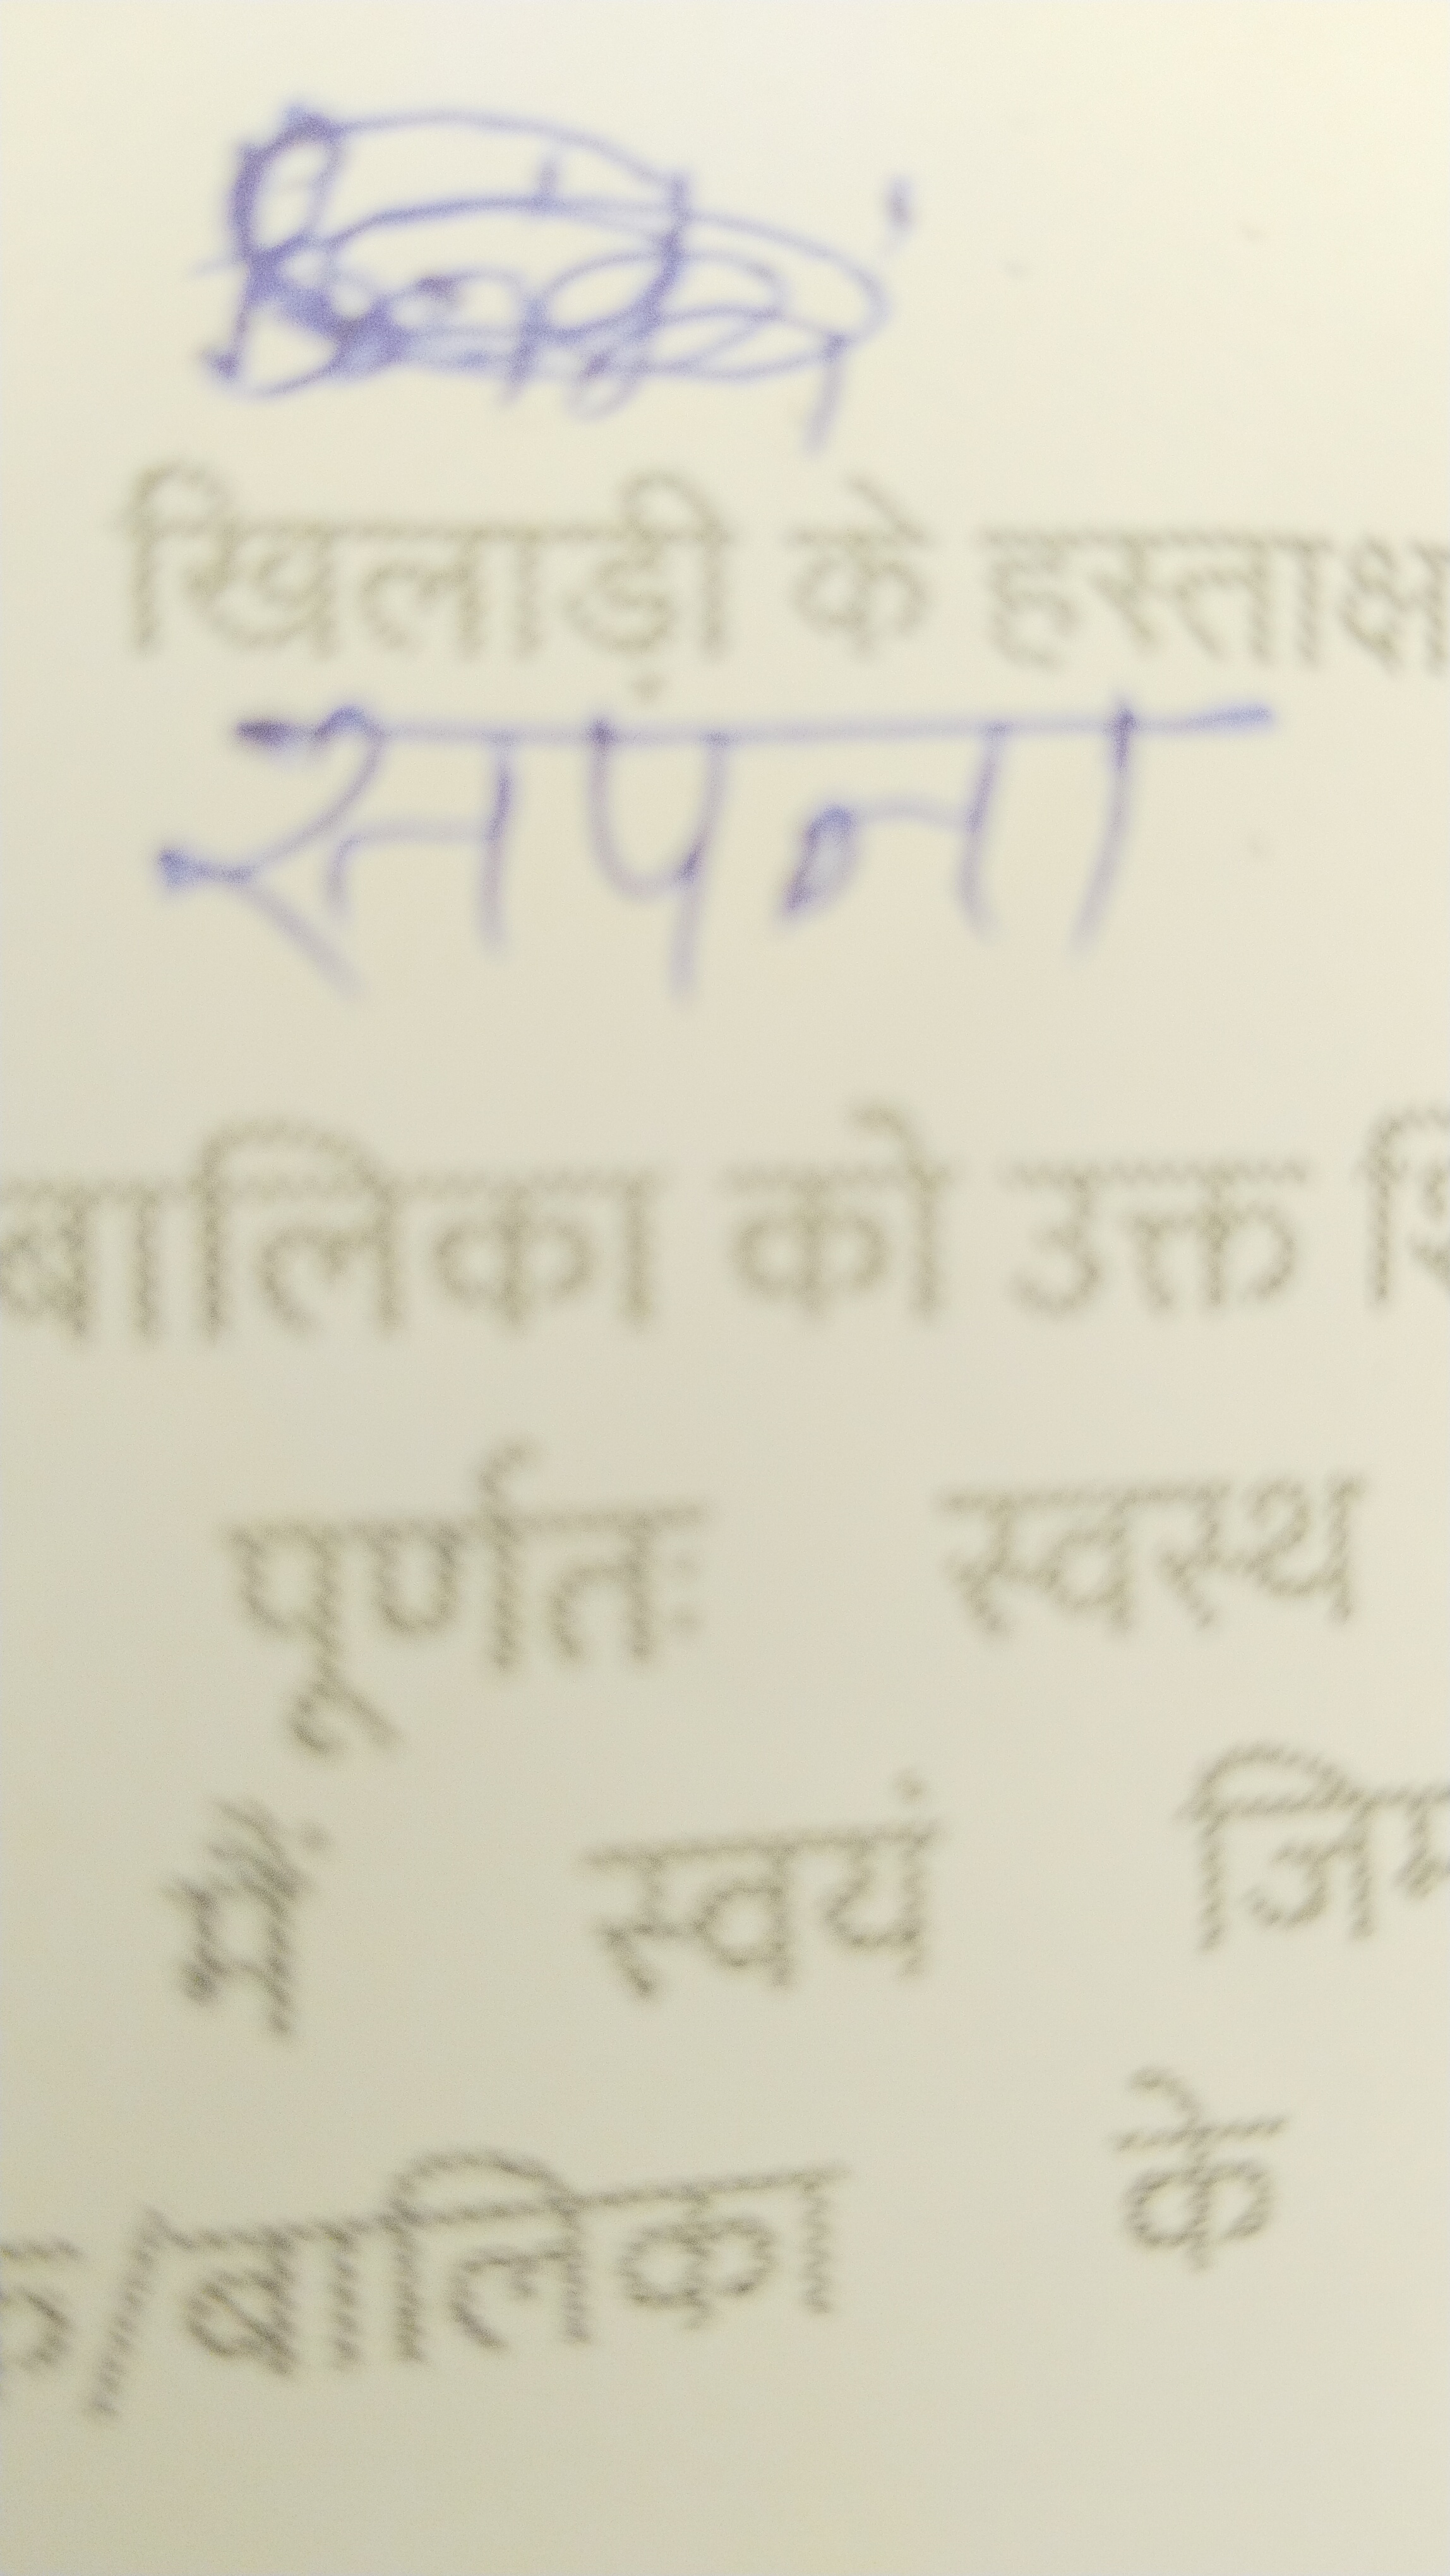 खिलाड़ी के हस्ताक्ष
सपना
बालिका को उक्त
पूर्णतः स्वस्थ
में स्वयं
/बालिका के